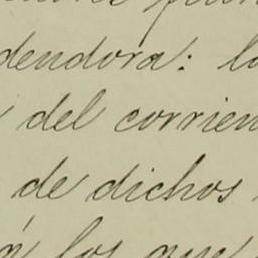 dendora: lo
del corrien
de dichos
los que